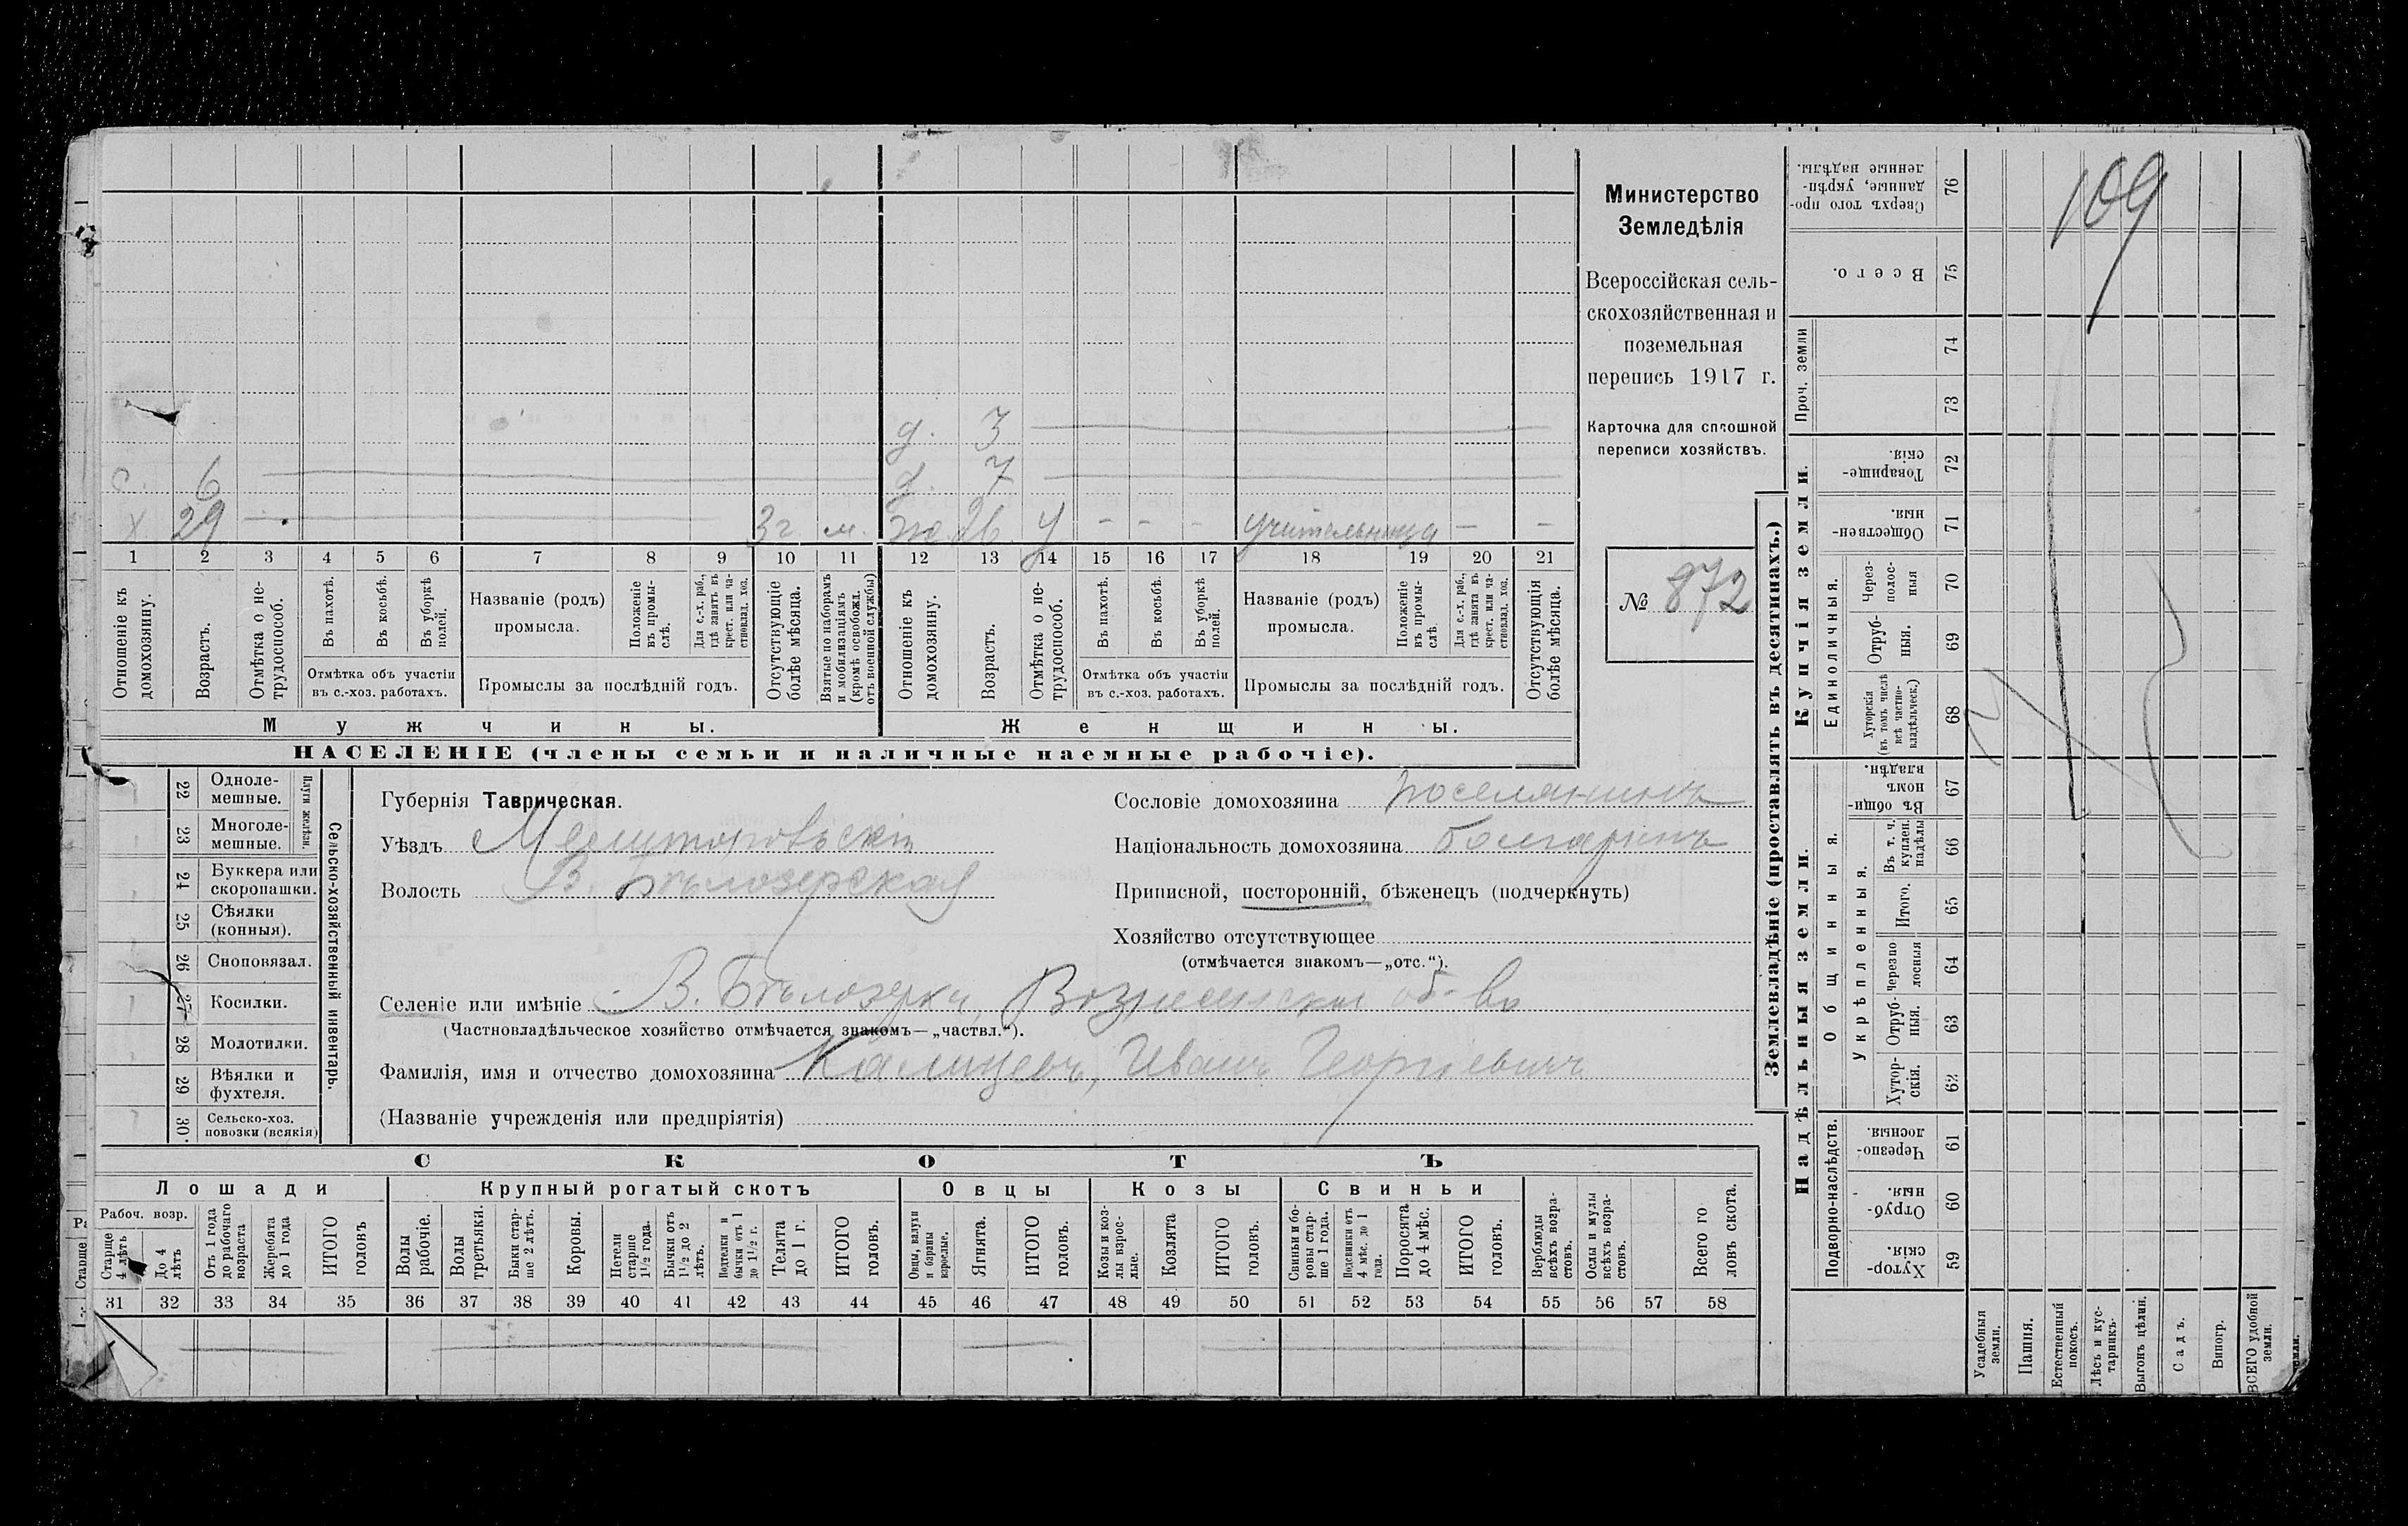 Министерство
Земледѣлія
Всероссійская сель-
скохозяйственная и
поземельная
перепись 1917 г.
Карточка для сплошной
переписи хозяйствъ.
№ 872
109
д. 3
с. 6 д. 7
х 29 3 г. м. ж. 26 У - - - учительница - -
1 2 3 4 5 6 7 8 9 10 11 12 13 14 15 16 17 18 19 20 21
Отношеніе къ домохозяину.
Возрастъ.
Отмѣтка о не-трудоспособ.
Въ пахотѣ.
Въ косьбѣ.
Въ уборкѣ полей.
Отмѣтка объ участіи
въ с.-хоз. работахъ.
Названіе (родъ)
промысла.
Положеніе въ промы-слѣ.
Для с.-х. раб., гдѣ занятъ въ крест. или ча-стновлад. хоз.
Промыслы за послѣдній годъ.
Отсутствующіе болѣе мѣсяца.
Взятые по наборамъ и мобилизаціямъ (кромѣ освобожд. отъ военной службы)
Отношеніе къ домохозяину.
Возрастъ.
Отмѣтка о не-трудоспособ.
Въ пахотѣ.
Въ косьбѣ.
Въ уборкѣ полей.
Отмѣтка объ участіи
въ с.-хоз. работахъ.
Названіе (родъ)
промысла.
Положеніе въ промы-слѣ.
Для с.-х. раб., гдѣ занята въ крест. или ча-стновлад. хоз.
Промыслы за послѣдній годъ.
Отсутствующія болѣе мѣсяца.
Мужчины. Женщины.
НАСЕЛЕНІЕ (члены семьи и наличные наемные рабочіе).
22 Одноле-мешные.
23 Многоле-мешные.
Плуги желѣзн.
24 Буккера или скоропашки.
25 Сѣялки (конныя).
26 Сноповязал.
27 Косилки.
28 Молотилки.
29 Вѣялки и фухтеля.
30 Сельско-хоз. повозки (всякія)
Сельско-хозяйственный инвентарь.
Губернія Таврическая.
Уѣздъ Мелитопольскій
Волость В. Бѣлозерская
Сословіе домохозяина поселянинъ
Національность домохозяина болгаринъ
Приписной, посторонній, бѣженецъ (подчеркнуть)
Хозяйство отсутствующее
(отмѣчается знакомъ—„отс.“).
Селеніе или имѣніе В. Бѣлозерка, Вознесенскаго об-ва
(Частновладѣльческое хозяйство отмѣчается знакомъ—„частвл.“).
Фамилія, имя и отчество домохозяина Калицевъ, Иванъ Георгіевичъ
(Названіе учрежденія или предпріятія)
СКОТЪ
Лошади Крупный рогатый скотъ Овцы Козы Свиньи
Рабоч. возр.
Старше 4 лѣтъ
До 4 лѣтъ
Отъ 1 года до рабочаго возраста
Жеребята до 1 года
ИТОГО головъ
Волы рабочіе.
Волы третьяки.
Быки стар-ше 2 лѣтъ.
Коровы.
Нетели старше 1½ года.
Бычки отъ 1½ до 2 лѣтъ.
Подтелки и бычки отъ 1 до 1½ г.
Телята до 1 г.
ИТОГО головъ.
Овцы, валухи и бараны взрослые.
Ягнята.
ИТОГО головъ.
Козы и коз-лы взрос-лые.
Козлята
ИТОГО головъ.
Свиньи и бо-ровы стар-ше 1 года.
Подсвинки отъ 4 мѣс. до 1 года.
Поросята до 4 мѣс.
ИТОГО головъ.
Верблюды всѣхъ возра-стовъ.
Ослы и мулы всѣхъ возра-стовъ.
Всего го ловъ скота.
31 32 33 34 35 36 37 38 39 40 41 42 43 44 45 46 47 48 49 50 51 52 53 54 55 56 57 58
Землевладѣніе (проставлять въ десятинахъ.)
Купчія земли.
Сверхъ того про-данные, укрѣп-ленные надѣлы. 76
Всего. 75
Проч. земли 74
73
Товарище-скія. 72
Обществен-ныя. 71
Единоличныя.
Через-полос-ныя 70
Отруб-ныя. 69
Хуторскія (въ томъ числѣ всѣ частно-владѣльческ.) 68
Надѣльныя земли.
Общинныя.
Въ общин-номъ владѣн. 67
Укрѣпленныя.
Въ т. ч. куплен. надѣлы 66
Итого. 65
Черезпо лосныя 64
Отруб-ныя. 63
Хутор-скія. 62
Подворно-наслѣдств.
Черезпо-лосныя. 61
Отруб-ныя. 60
Хутор-скія. 59
Усадебныя земли.
Пашня.
Естественный покосъ.
Лѣсъ и кус-тарникъ.
Выгонъ цѣлин.
Садъ.
Виногр.
ВСЕГО удобной земли.